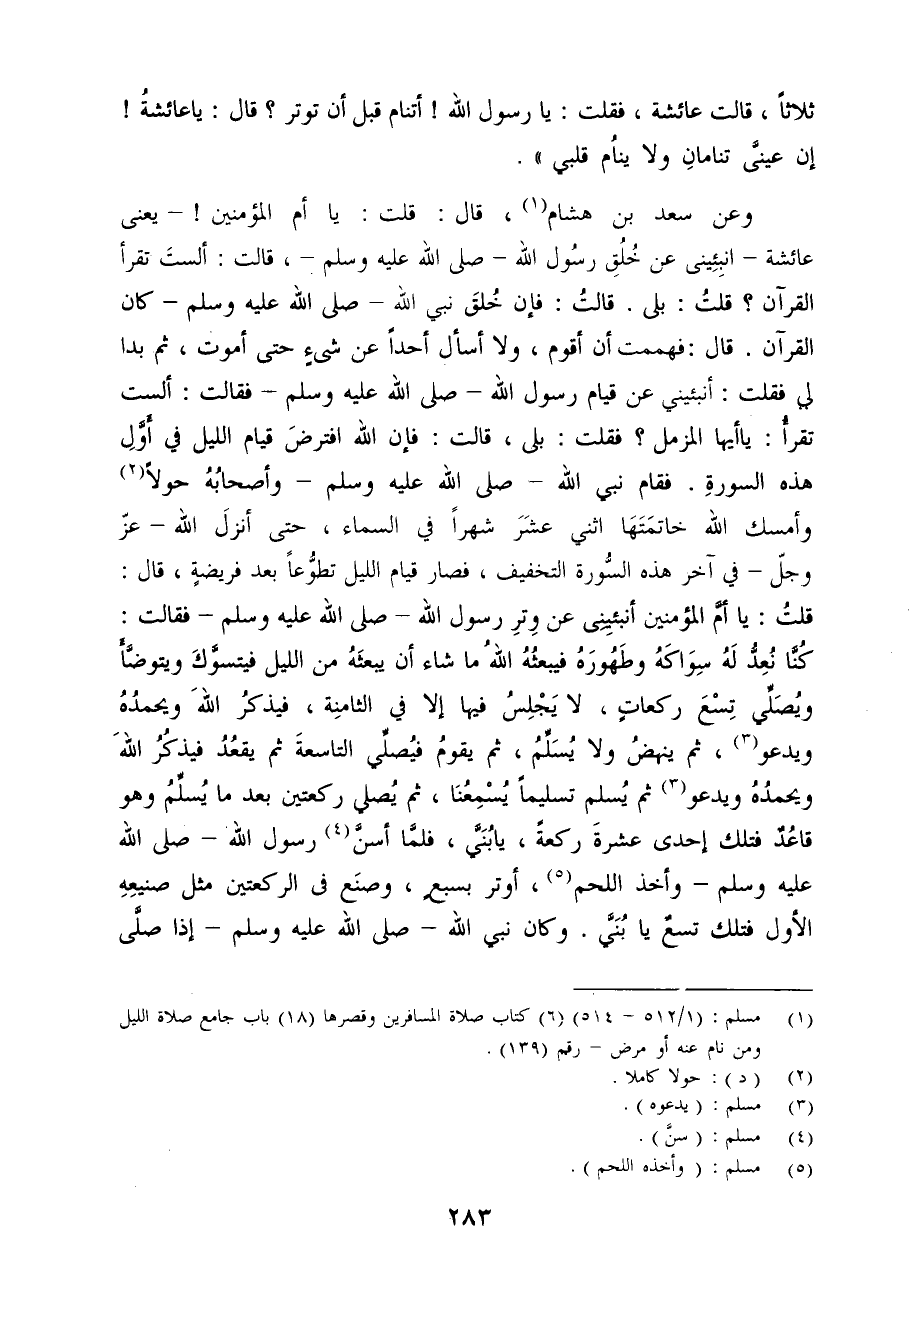 ثلاثاً ، قالت عائشة ، فقلت : يا رسول الله ! أتنام قبل أن توتر ؟ قال : ياعائشةُ !
إن عينىَّ تنامانِ ولا ينأم قلبي » .
وعن سعد بن هشام(١) ، قال : قلت : يا أم المؤمنين ! – يعنى
عائشة – انبِئِينى عن خُلُقِ رسُول الله – صلى الله عليه وسلم – ، قالت : ألستَ تقرأ
القرآن ؟ قلتُ : بلى . قالتُ : فإن خُلقَ نبي الله – صلى الله عليه وسلم – كان
القرآن . قال :فهممت أن أقوم ، ولا أسأل أحداً عن شىءٍ حتى أموت ، ثم بدا
لي فقلت : أنبئيني عن قيام رسول الله – صلى الله عليه وسلم – فقالت : ألست
تقرأُ : ياأيها المزمل ؟ فقلت : بلى ، قالت : فإن الله افترضَ قيام الليل في أَوَّلِ
هذه السورةِ . فقام نبي الله – صلى الله عليه وسلم – وأصحابُهُ حولاً(٢)
وأمسك الله خاتمَتَهَا اثني عشَرَ شهراً في السماء ، حتى أنزلَ الله – عزّ
وجلّ – في آخر هذه السُّورة التخفيف ، فصار قيام الليل تطوُّعاً بعد فريضةٍ ، قال :
قلتُ : يا أمَّ المؤمنين أنبئِينِى عن وِترِ رسول الله – صلى الله عليه وسلم – فقالت :
كُنَّا نُعِدُّ لَهُ سِوَاكَهُ وطَهُورَهُ فيبعثُهُ اللهُ ما شاء أن يبعثَهُ من الليل فيتسوَّكَ ويتوضَّأَ
ويُصَلِّي تِسْعَ ركعاتٍ ، لا يَجْلِسُ فيها إلا في الثامنِة ، فيذكرُ اللهَ ويحمدُهُ
ويدعو(٣) ، ثم ينهضُ ولا يُسَلِّمُ ، ثم يقومُ فيُصلِّي التاسعةَ ثم يقعُدُ فيذكُرُ اللهَ
ويحمدُهُ ويدعو(٣) ثم يُسلم تسليماً يُسْمِعُنَا ، ثم يُصلي ركعتين بعد ما يُسلِّمُ وهو
قاعُدٌ فتلك إحدى عشرةَ ركعةً ، يابُنَيَّ ، فلمَّا أسنَّ(٤) رسول الله – صلى الله
عليه وسلم – وأخذ اللحم(٥) ، أوتر بسبعٍ ، وصنَع فى الركعتين مثل صنيعِهِ
الأول فتلك تسعٌ يا بُنَيَّ . وكان نبي الله – صلى الله عليه وسلم – إذا صلَّى
(١) مسلم : (٥١٢/١ – ٥١٤) (٦) كتاب صلاة المسافرين وقصرها (١٨) باب جامع صلاة الليل
ومن نام عنه أو مرض – رقم (١٣٩) .
(٢) ( د ) : حولا كاملا .
(٣) مسلم : ( يدعوه ) .
(٤) مسلم : ( سنَّ ) .
(٥) مسلم : ( وأخذه اللحم ) .
٢٨٣